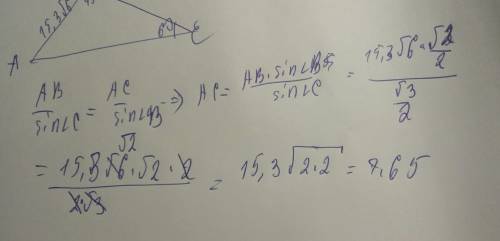 15,3√6 45
6
A C
AB/sin∠C = AC/sin∠B => AC = AB·sin∠B/sin∠C = (15,3√6·√2/2)/(√3/2)
√2
= 15,3√6·√2·2/2·√3 = 15,3√2·2 = 7.65